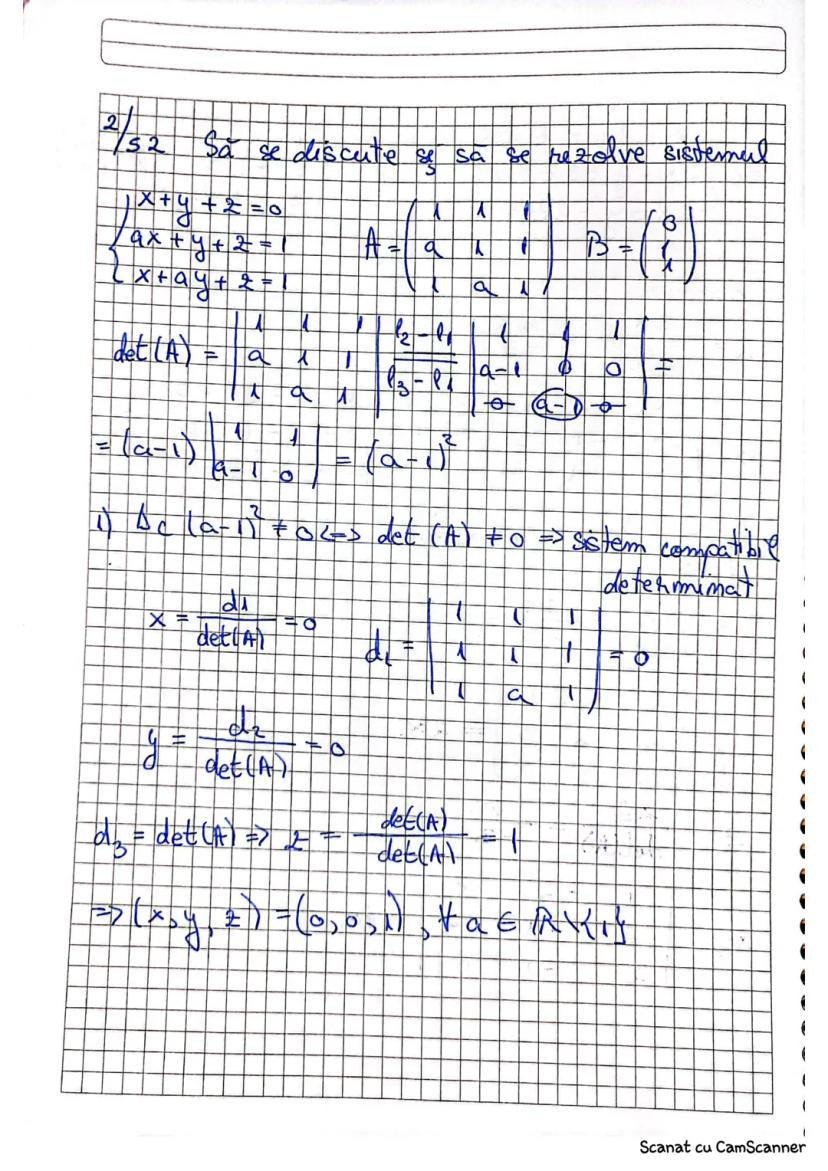 2/52 Să se discute și să se rezolve sistemul
x+y+z=0
ax+y+z=1
x+ay+z=1
A = ( 1 1 1
a 1 1
1 a 1 )
B = ( 0
1
1 )
det(A) = | 1 1 1
a 1 1
1 a 1 |
l2-l1
l3-l1
| 1 1 1
a-1 0 0
0 a-1 0 | =
= (a-1) | 1 1
a-1 0 | = (a-1)²
1) Dc (a-1)² ≠ 0 <=> det(A) ≠ 0 => sistem compatibil
determinat
x = d1/det(A) = 0
d1 = | 1 1 1
1 1 1
1 a 1 | = 0
y = d2/det(A) = 0
d3 = det(A) => z = det(A)/det(A) = 1
=> (x,y,z) = (0,0,1), ∀ a ∈ ℝ\{1}
Scanat cu CamScanner